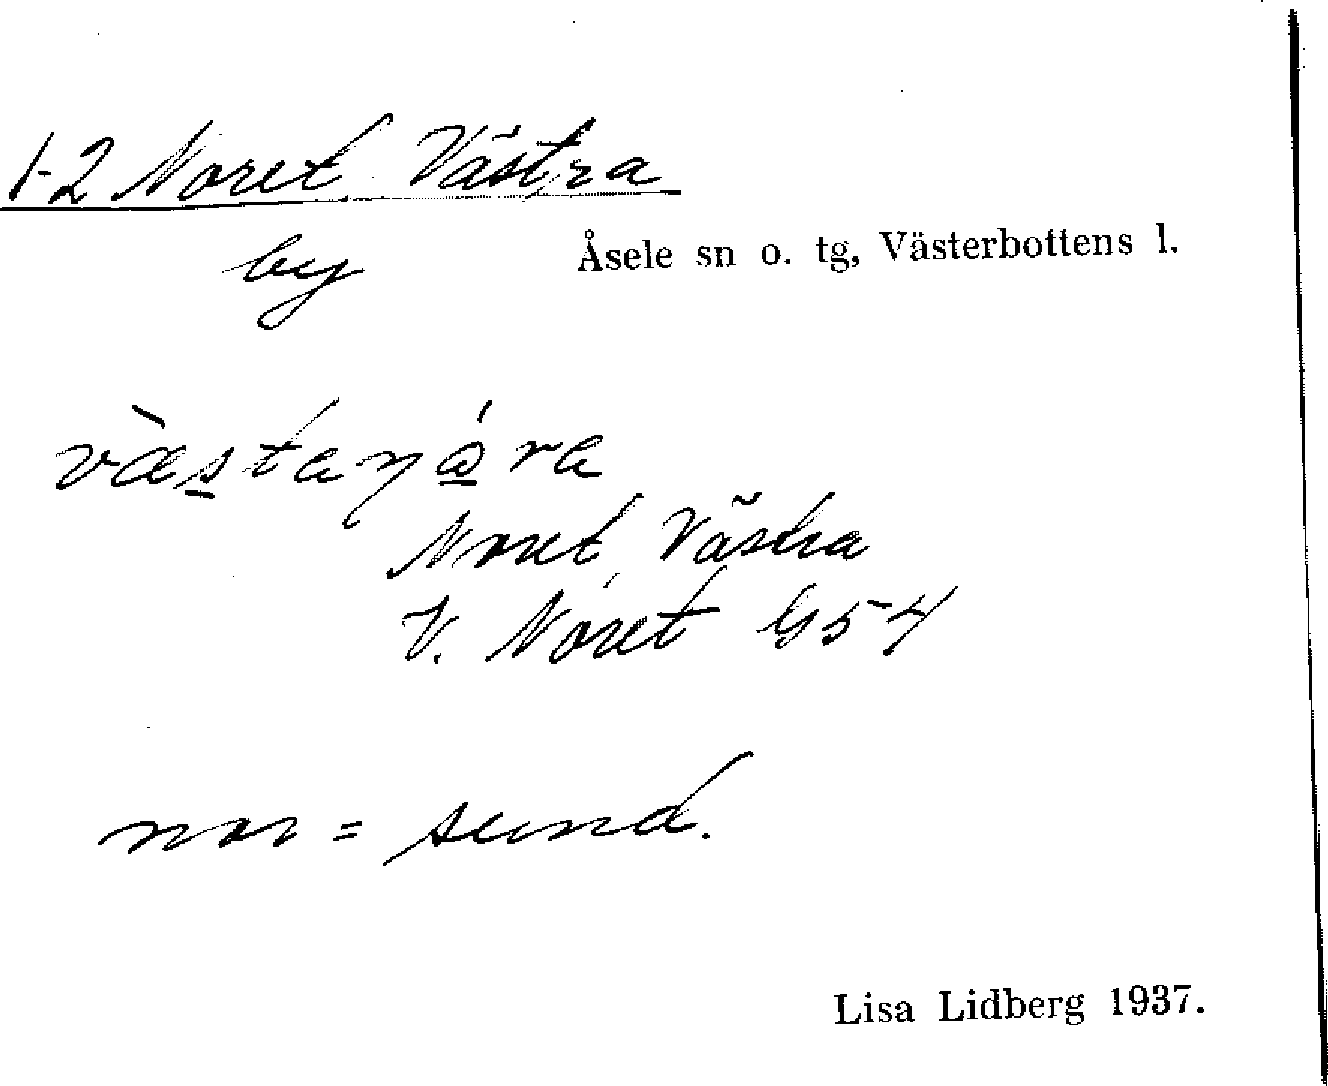 1-2 Noret Västra
by
Åsele sn o. tg, Västerbottens l.
væ̀staŋåra
Noret, Västra
V. Noret G54
nor = sund.
Lisa Lidberg 1937.